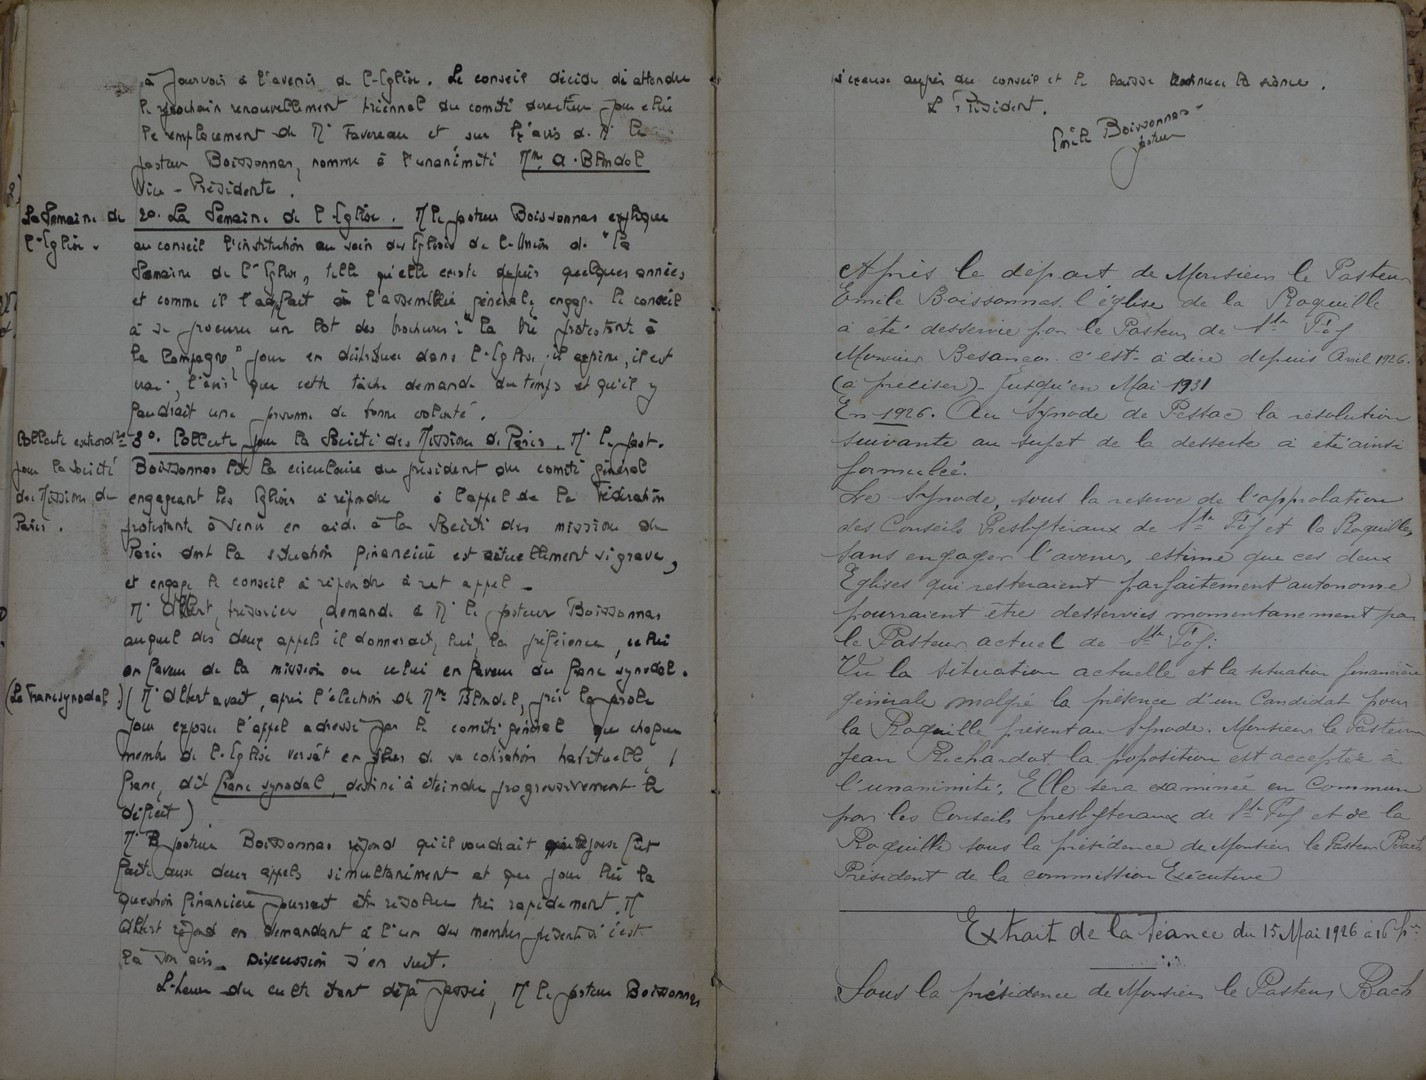 à pourvoir à l'avenir de l'Eglise. Le conseil décide d'attendre
le prochain renouvellement triennal du comité directeur pour élire
le remplacement de Mr Favereau et sur l'avis de Mr le
pasteur Boissonnas, nomme à l'unanimité Mme A. Blndol
Vice-Présidente.
La Semaine de
l'Eglise.
2o. La Semaine de l'Eglise. M le pasteur Boissonnas explique
au conseil l'institution au sein des Eglises de l'Union de "la
Semaine de l'Eglise, telle qu'elle existe depuis quelques années
et comme il l'a fait à l'assemblée générale, engage le conseil
à se procurer un lot des brochures: "la vie protestante à
la Campagne" pour en distribuer dans l'Eglise, il exprime, il est
vrai, l'avis que cette tâche demande du temps et qu'il y
faudrait une personne de bonne volonté.
Collecte extraordre
pour la société
des Missions de
Paris.
3o. Collecte pour la Société des Missions de Paris. Mr le past.
Boissonnas lit la circulaire du président du comité général
engageant les Eglises à répondre à l'appel de la Fédération
protestante à venir en aide à la Société des mission de
Paris dont la situation financière est actuellement si grave,
et engage le conseil à répondre à cet appel _
Mr Albert, trésorier, demande à Mr le pasteur Boissonnas
auquel des deux appels il donnerait, lui, la préférence, celui
en faveur de la mission ou celui en faveur du franc synodal.
(Le Franc synodal)
(Mr Albert avait, après l'élection de Mme Blndol, pris la parole
pour exposer l'appel adressé par le comité général que chaque
membre de l'Eglise versât en plus de sa cotisation habituelle, 1
franc, dit franc synodal, destiné à éteindre progressivement le
déficit)
Mr le pasteur Boissonnas répond qu'il voudrait que réponse fut
faite aux deux appels simultanément et que pour lui la
question financière pourrait être résolue très rapidement. M
Albert répond en demandant à l'un des membres présents si c'est
là son avis _ Discussion s'en suit.
L'heure du culte étant déjà passée, M le pasteur Boissonnas
s'excuse auprès du conseil et le laisse continuer la séance.
Le Président.
Emile Boissonnas
pasteur
Après le départ de Monsieur le Pasteur
Emile Boissonnas. l'église de la Roquille
a été desservie par le Pasteur de Ste Foy
Monsieur Besançon. c'est-à-dire depuis Avril 1926.
(à préciser) - Jusqu'en Mai 1931
En 1926. Au Synode de Pessac la résolution
suivante au sujet de la desserte a été ainsi
formulée.
Le Synode, sous la réserve de l'approbation
des Conseils Presbytéraux de Ste Foy et la Roquille,
sans engager l'avenir, estime que ces deux
Eglises qui resteraient parfaitement autonome
pourraient être desservies momentanement par
le Pasteur actuel de Ste Foy.
Vu la situation actuelle et la situation financière
générale malgré la présence d'un Candidat pour
la Roquille présent au Synode. Monsieur le Pasteur
Jean Richardot la poposition est acceptée à
l'unanimité; Elle sera examinée en Commun
par les Conseils presbyteraux de Ste Foy et de la
Roquille sous la présidence de Monsieur le Pasteur Bach
Président de la commission Exécutive
Extrait de la Séance du 15 Mai 1926 à 16 h
Sous la présidence de Monsieur le Pasteur Bach